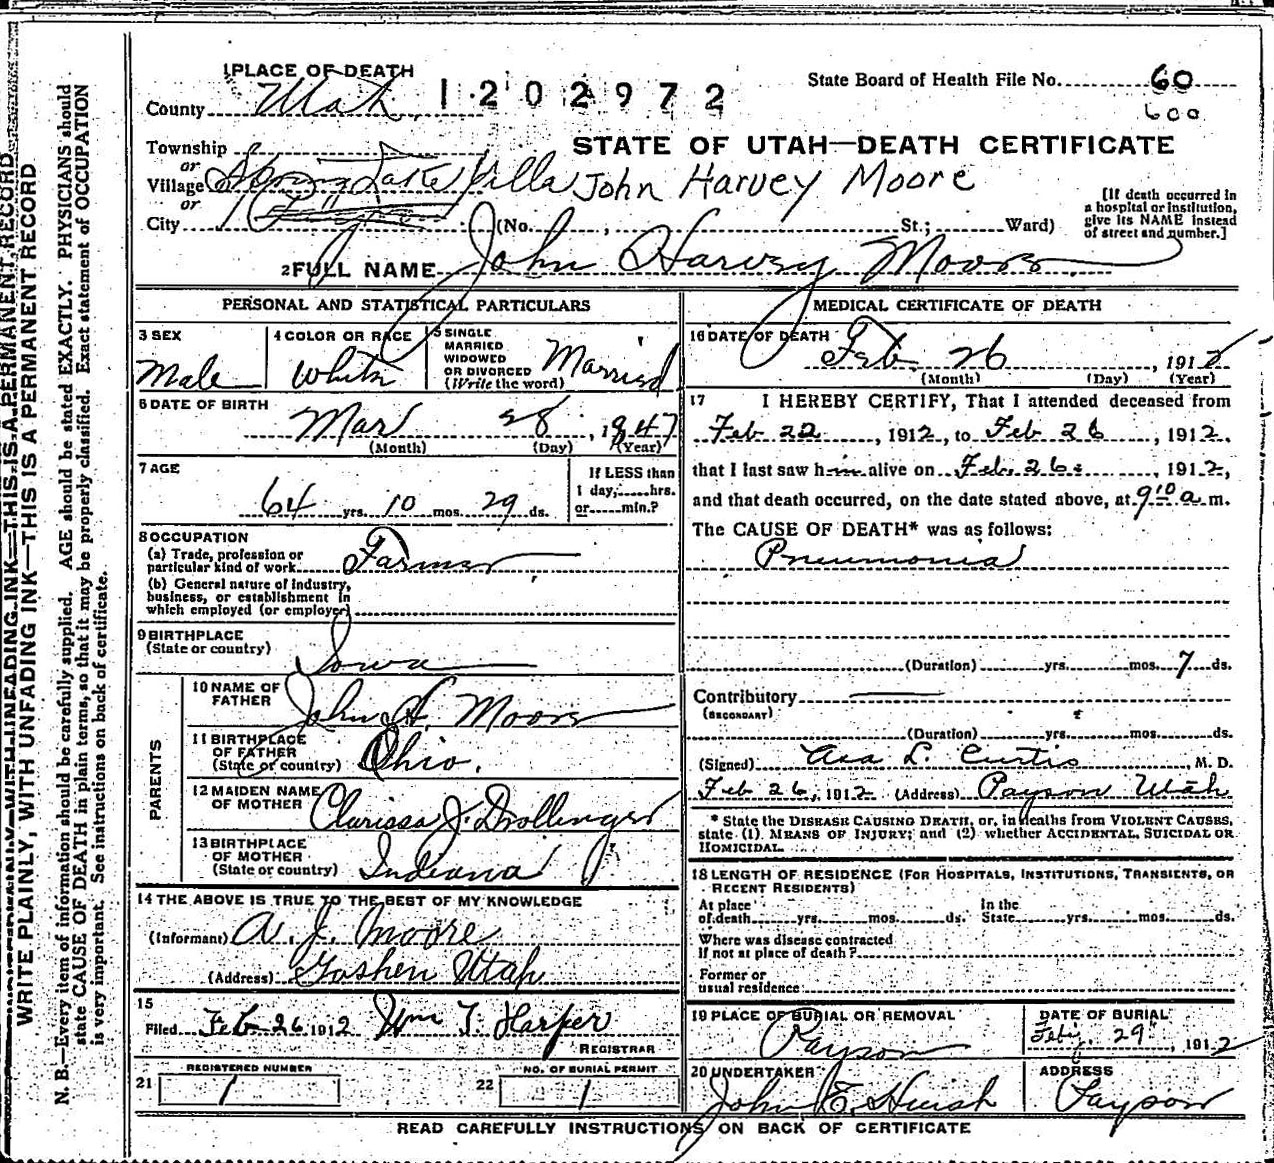 1 PLACE OF DEATH
County Utah
1202972
State Board of Health File No. 60
600
STATE OF UTAH—DEATH CERTIFICATE
Township
or
Village Spring Lake Villa John Harvey Moore
or
City (No. , St.; Ward)
[If death occurred in
a hospital or institution,
give its NAME instead
of street and number.]
2 FULL NAME John Harvey Moore
PERSONAL AND STATISTICAL PARTICULARS
3 SEX
Male
4 COLOR OR RACE
White
5 SINGLE
MARRIED
WIDOWED
OR DIVORCED
(Write the word)
Married
6 DATE OF BIRTH
Mar 28, 1847
(Month) (Day) (Year)
7 AGE
64 yrs. 10 mos. 29 ds.
If LESS than
1 day, hrs.
or min.?
8 OCCUPATION
(a) Trade, profession or
particular kind of work Farmer
(b) General nature of industry,
business, or establishment in
which employed (or employer)
9 BIRTHPLACE
(State or country)
Iowa
PARENTS
10 NAME OF
FATHER
John H. Moore
11 BIRTHPLACE
OF FATHER
(State or country)
Ohio.
12 MAIDEN NAME
OF MOTHER
Clarissa J. Drollinger
13 BIRTHPLACE
OF MOTHER
(State or country)
Indiana
14 THE ABOVE IS TRUE TO THE BEST OF MY KNOWLEDGE
(Informant) A. J. Moore
(Address) Goshen Utah
15
Filed Feb 26 1912 Wm T. Harper
REGISTRAR
21
REGISTERED NUMBER
1
22
NO. OF BURIAL PERMIT
1
MEDICAL CERTIFICATE OF DEATH
16 DATE OF DEATH
Feb. 26, 1912
(Month) (Day) (Year)
17 I HEREBY CERTIFY, That I attended deceased from
Feb 22, 1912, to Feb 26, 1912,
that I last saw him alive on Feb. 26, 1912,
and that death occurred, on the date stated above, at 9 10 a m.
The CAUSE OF DEATH* was as follows:
Pneumonia
(Duration) yrs. mos. 7 ds.
Contributory
(SECONDARY)
(Duration) yrs. mos. ds.
(Signed) Asa L. Curtis, M. D.
Feb 26, 1912 (Address) Payson Utah
* State the DISEASE CAUSING DEATH, or, in deaths from VIOLENT CAUSES,
state (1) MEANS OF INJURY; and (2) whether ACCIDENTAL, SUICIDAL OR
HOMICIDAL.
18 LENGTH OF RESIDENCE (FOR HOSPITALS, INSTITUTIONS, TRANSIENTS, OR
RECENT RESIDENTS)
At place In the
of death yrs. mos. ds. State yrs. mos. ds.
Where was disease contracted
If not at place of death?
Former or
usual residence
19 PLACE OF BURIAL OR REMOVAL
Payson
DATE OF BURIAL
29, 1912
20 UNDERTAKER
John E. Huish
ADDRESS
Payson
READ CAREFULLY INSTRUCTIONS ON BACK OF CERTIFICATE
WRITE PLAINLY, WITH UNFADING INK—THIS IS A PERMANENT RECORD
N. B.—Every item of information should be carefully supplied. AGE should be stated EXACTLY. PHYSICIANS should
state CAUSE OF DEATH in plain terms, so that it may be properly classified. Exact statement of OCCUPATION
is very important. See instructions on back of certificate.